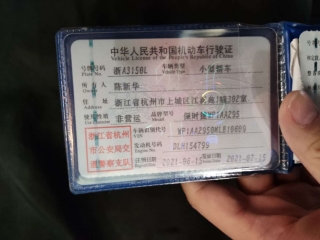 中华人民共和国机动车行驶证
Vehicle License of the People's Republic of China
号牌号码 浙A3150L 车辆类型 小型轿车
Plate No. Vehicle Type
所有人 陈新华
Owner
住址 浙江省杭州市上城区江
Address
使用性质 非营运 品牌型号
浙江省杭州
市公安局交
通警察支队
车辆识别代号
VIN
发动机号码 DLH154799
Engine No.
注册日期 2021-06-15 发证日期 2021-07-15